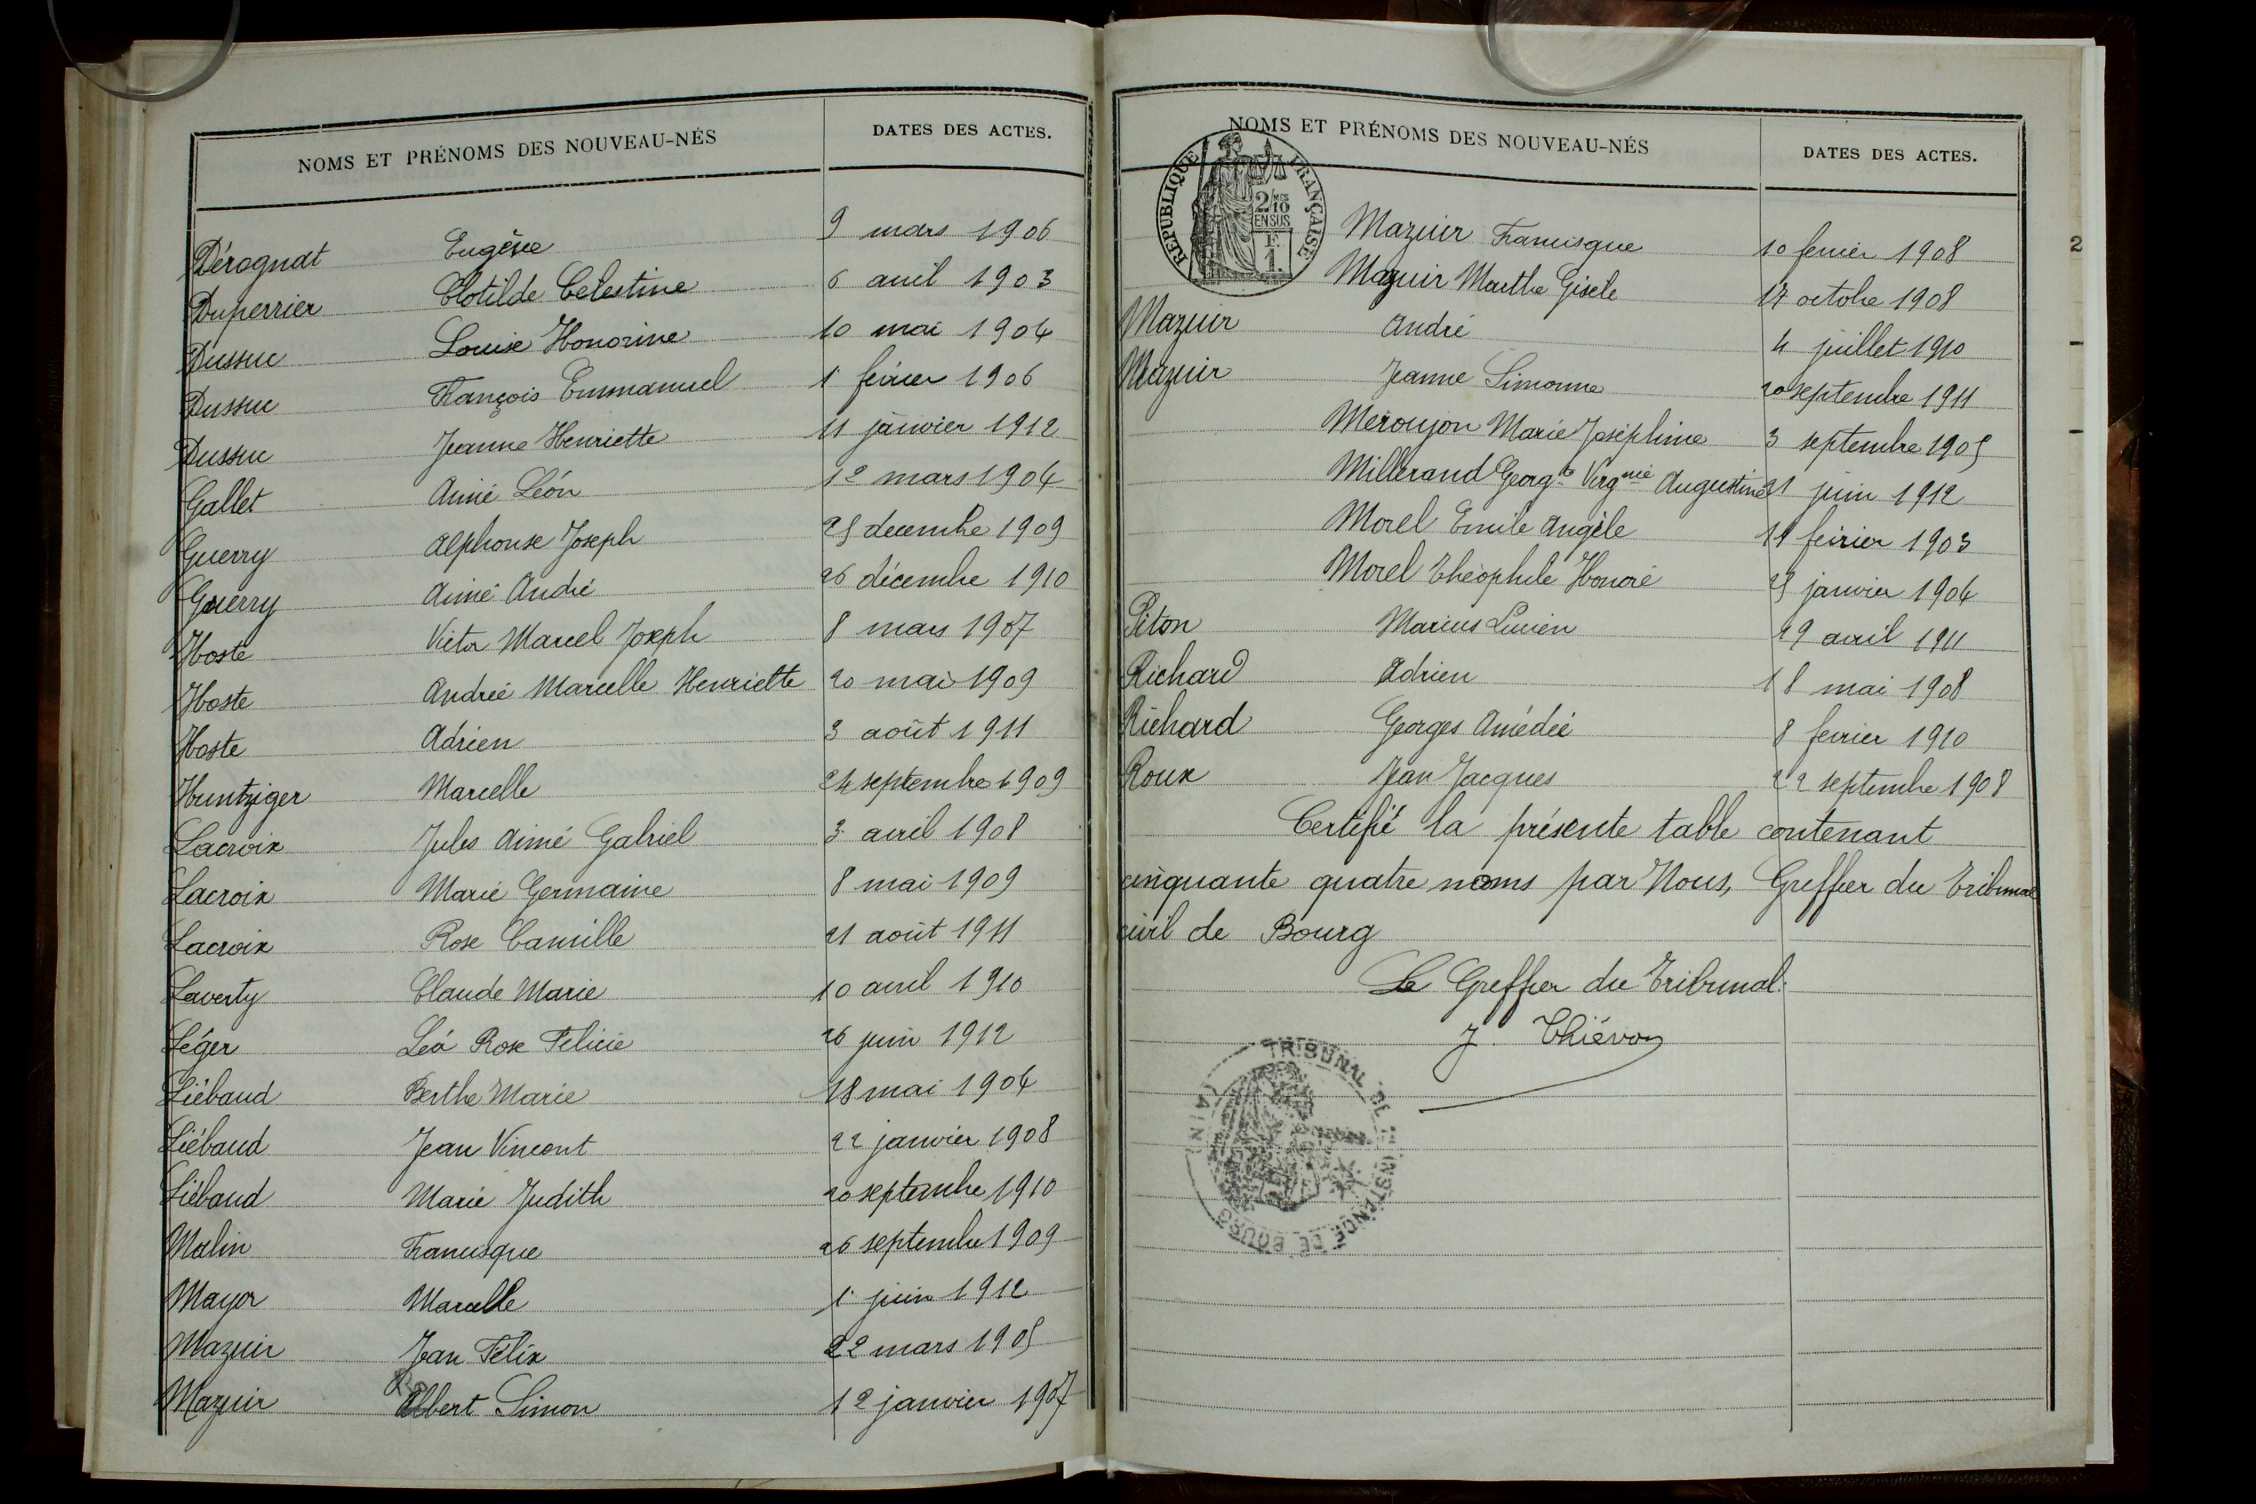 NOMS ET PRÉNOMS DES NOUVEAU-NÉS DATES DES ACTES.
Dérognat Eugène 9 mars 1906
Duperrier Clotilde Celestine 6 avril 1903
Dussuc Louise Honorine 10 mai 1904
Dussuc François Emmanuel 1 février 1906
Dussuc Jeanne Henriette 11 janvier 1912
Gallet Aimé Léon 12 mars 1904
Guerry Alphonse Joseph 25 decembre 1909
Guerry Aimé André 26 décembre 1910
Hoste Victor Marcel Joseph 8 mars 1907
Hoste Andrée Marcelle Henriette 20 mai 1909
Hoste Adrien 3 août 1911
Huntziger Marcelle 24 septembre 1909
Lacroix Jules Aimé Gabriel 3 avril 1908
Lacroix Marie Germaine 8 mai 1909
Lacroix Rose Camille 21 août 1911
Laverty Claude Marie 10 avril 1910
Léger Léa Rose Félicie 26 juin 1912
Liébaud Berthe Marie 18 mai 1904
Liébaud Jean Vincent 22 janvier 1908
Liébaud Marie Judith 20 septembre 1910
Malin Francisque 26 septembre 1909
Mayor Marcelle 1 juin 1912
Mazuir Jean Félix 22 mars 1905
Mazuir Albert Simon 12 janvier 1907
NOMS ET PRÉNOMS DES NOUVEAU-NÉS DATES DES ACTES.
RÉPUBLIQUE FRANÇAISE
2/10
EN SUS
F.
1.
2
Mazuir Francisque 10 fevrier 1908
Mazuir Marthe Gisele 17 octobre 1908
Mazuir André 4 juillet 1910
Mazuir Jeanne Simonne 20 septembre 1911
Meroujon Marie Joséphine 3 septembre 1905
Millerand Georgte Virgnie Augustine 21 juin 1912
Morel Emile Angèle 11 février 1903
Morel Théophile Honoré 23 janvier 1904
Piton Marius Lucien 29 avril 1911
Richard Adrien 18 mai 1908
Richard Georges Amédée 8 fevrier 1910
Roux Jean Jacques 22 septembre 1908
Certifié la présente table contenant
cinquante quatre noms par Nous, Greffier du Tribunal
civil de Bourg
Le Greffier du Tribunal.
J. Thiévon
TRIBUNAL DE 1e INSTANCE DE BOURG (AIN)